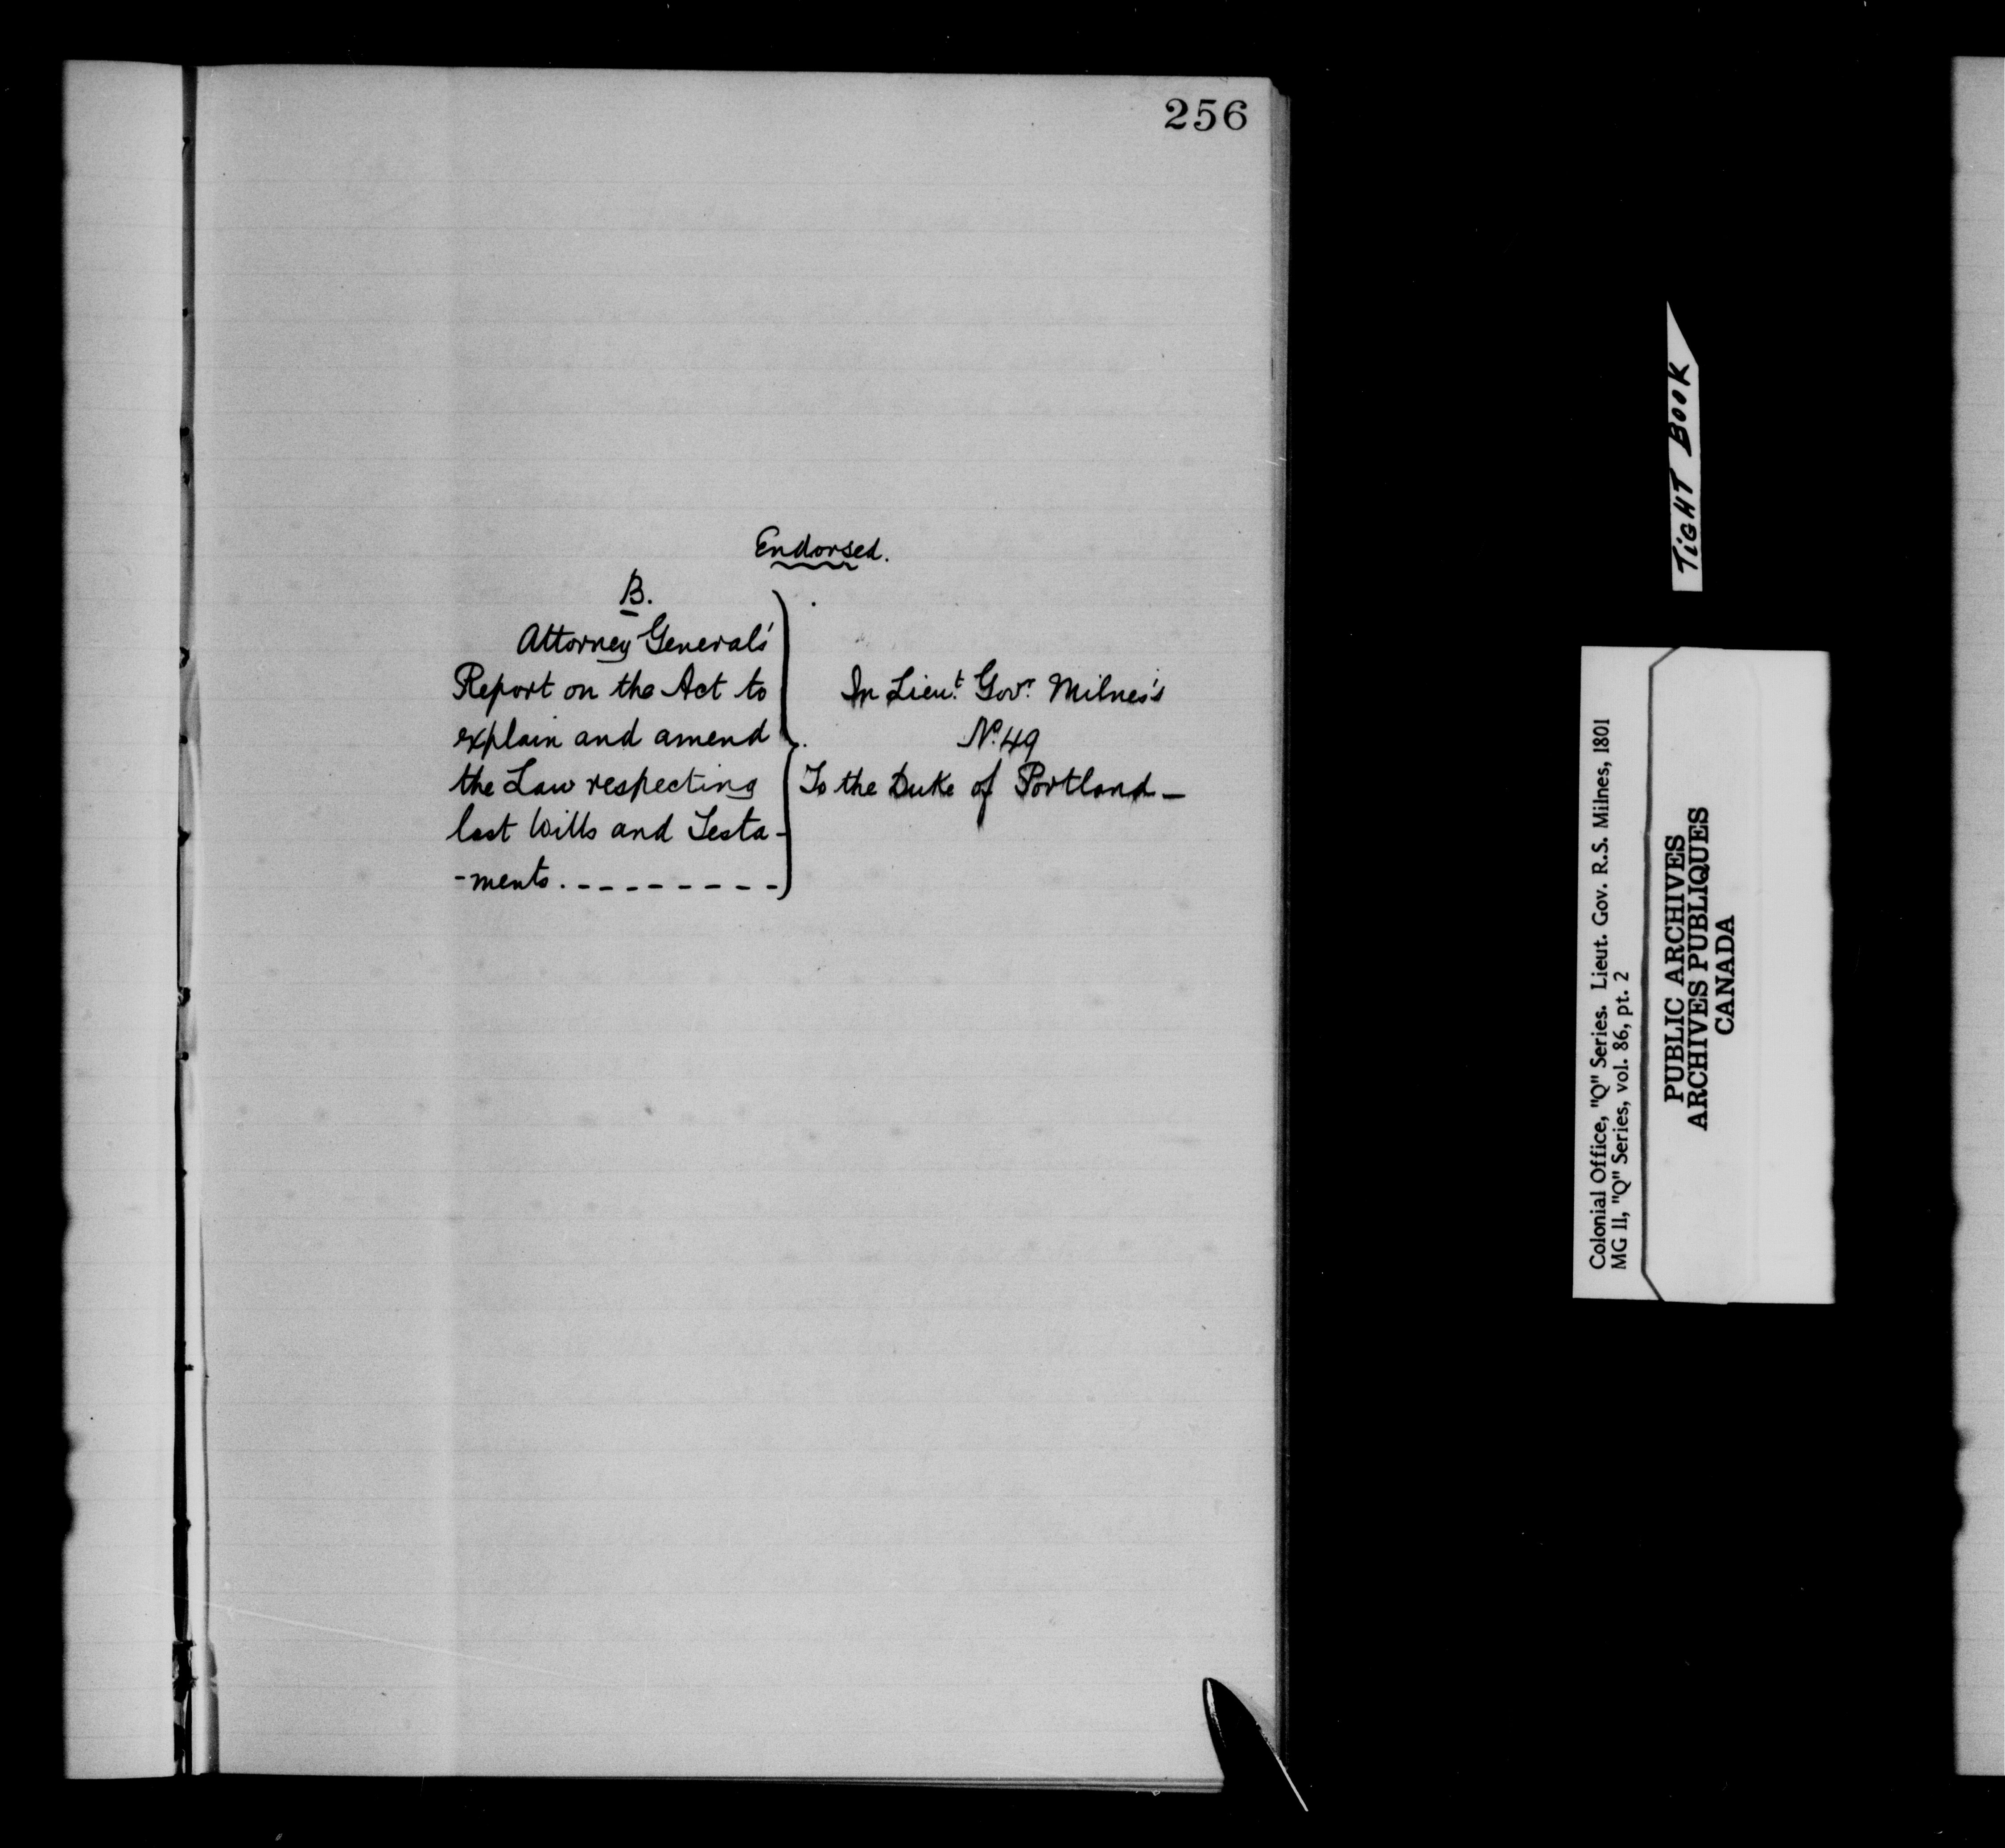 256
Endorsed.
B.
Attorney General's
Report on the Act to
explain and amend
the Law respecting
last Wills and Testa-
-ments. - - - - - - - - -
In Lieut. Govr. Milnes's
No. 49
To the Duke of Portland -
TiGHT BOOK
Colonial Office, "Q" Series. Lieut. Gov. R.S. Milnes, 1801
MG 11, "Q" Series, vol. 86, pt. 2
PUBLIC ARCHIVES
ARCHIVES PUBLIQUES
CANADA